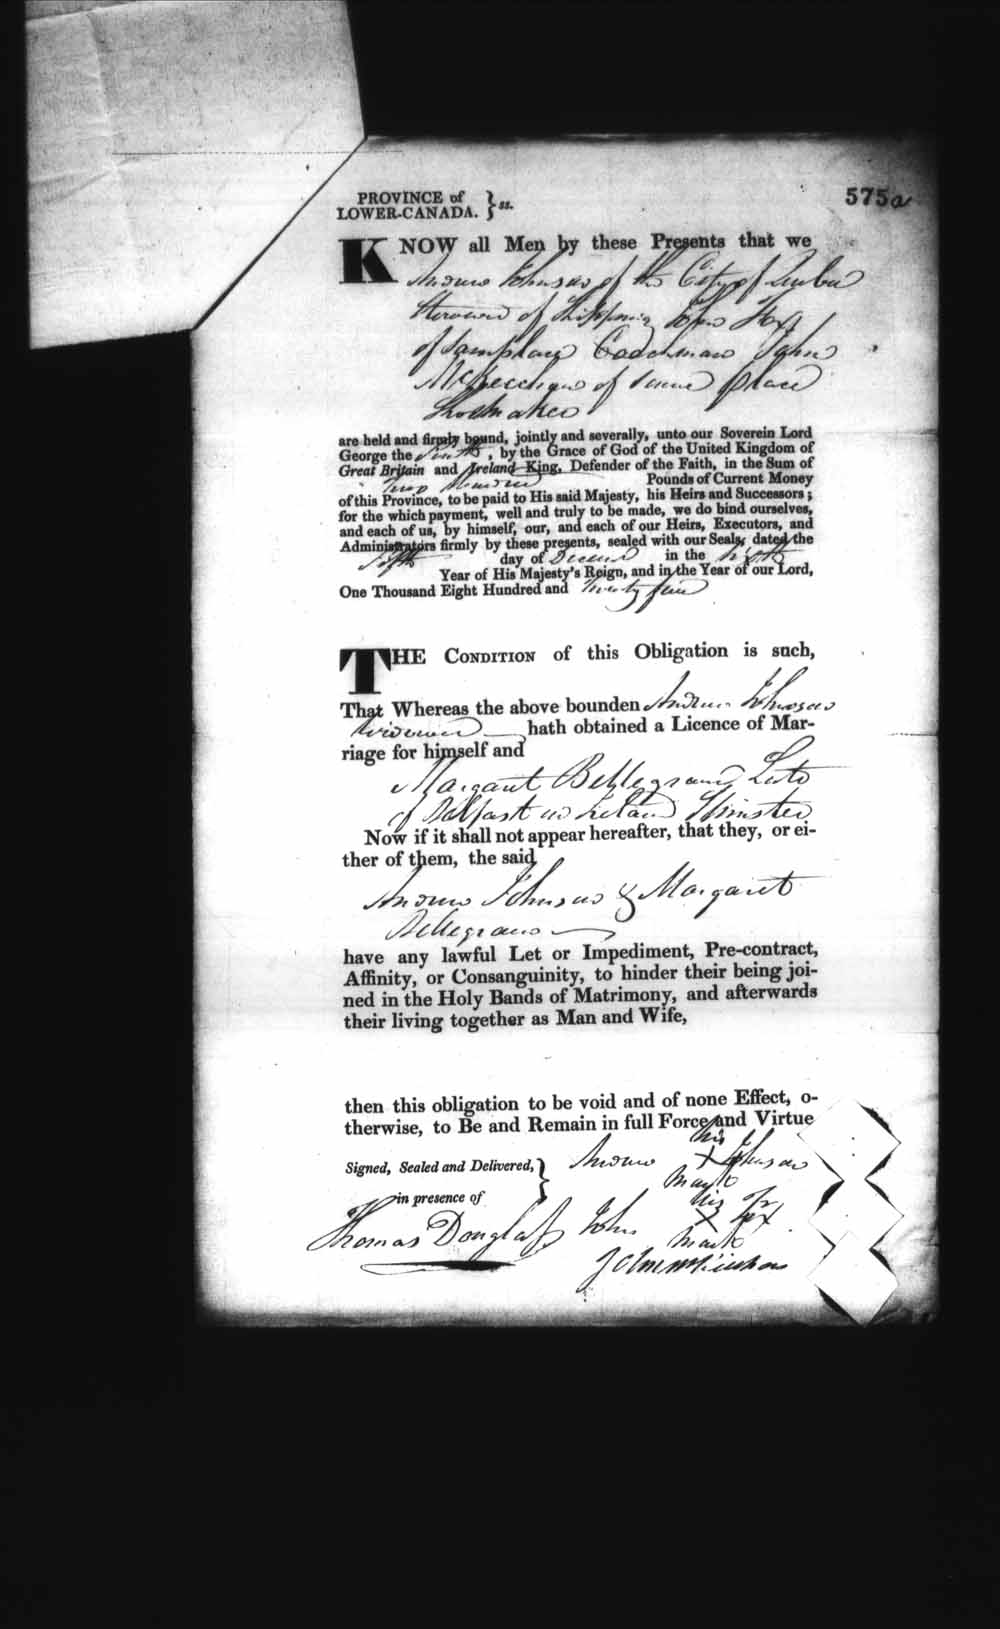 PROVINCE of
LOWER-CANADA. } ss.
575a
KNOW all Men by these Presents that we
Andrew Johnson of the City of Quebec
of Shipping John Fox
of same place Coachman John
of same place
Shoemaker
are held and firmly bound, jointly and severally, unto our Soverein Lord
George the , by the Grace of God of the United Kingdom of
Great Britain and Ireland King, Defender of the Faith, in the Sum of
Two Hundred Pounds of Current Money
of this Province, to be paid to His said Majesty, his Heirs and Successors;
for the which payment, well and truly to be made, we do bind ourselves,
and each of us, by himself, our, and each of our Heirs, Executors, and
Administrators firmly by these presents, sealed with our Seals, dated the
Fifth day of Decem in the
Year of His Majesty's Reign, and in the Year of our Lord,
One Thousand Eight Hundred and Twenty five
THE CONDITION of this Obligation is such,
That Whereas the above bounden Andrew Johnson
Widower hath obtained a Licence of Mar-
riage for himself and
Margaret Bellegrand Late
of Belfast in Ireland Spinster
Now if it shall not appear hereafter, that they, or ei-
ther of them, the said
Andrew Johnson & Margaret
have any lawful Let or Impediment, Pre-contract,
Affinity, or Consanguinity, to hinder their being joi-
ned in the Holy Bands of Matrimony, and afterwards
their living together as Man and Wife,
then this obligation to be void and of none Effect, o-
therwise, to Be and Remain in full Force and Virtue
his
Signed, Sealed and Delivered, } Andrew X Johnson
mark
in presence of his
Thomas Douglass John X Fox
mark
John